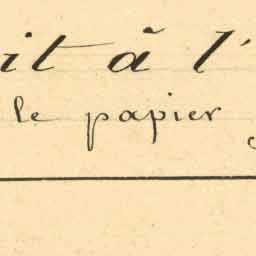 it à l'
le papier